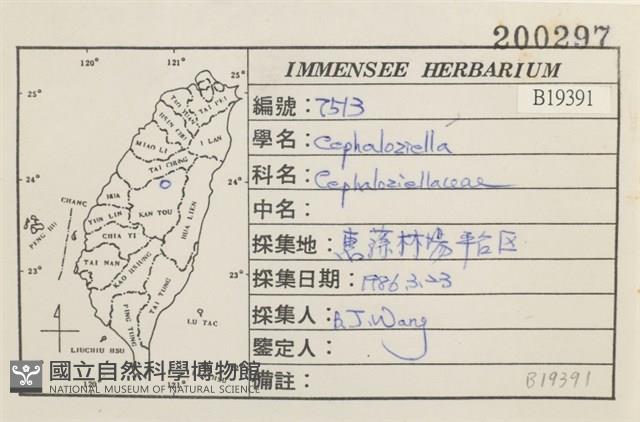 200297
IMMENSEE HERBARIUM
B19391
編號：7513
學名：Cephaloziella
科名：Cephaloziellaceae
中名：
採集地：惠蓀林場平台区
採集日期：1986.3.23
採集人：B.J.Wang
鑒定人：
備註：
B19391
120°
121°
25°
25°
TAO YUAN
TAI PEI
HSIN CHU
I LAN
MIAO LI
TAI CHUNG
24°
24°
CHANG HUA
NAN TOU
HUA LIEN
YUN LIN
PENG HU
CHIA YI
TAI NAN
KAO HSIUNG
23°
23°
TAI TUNG
PING TUNG
LU TAO
LIUCHIU HSU
120°
121°
國立自然科學博物館
NATIONAL MUSEUM OF NATURAL SCIENCE